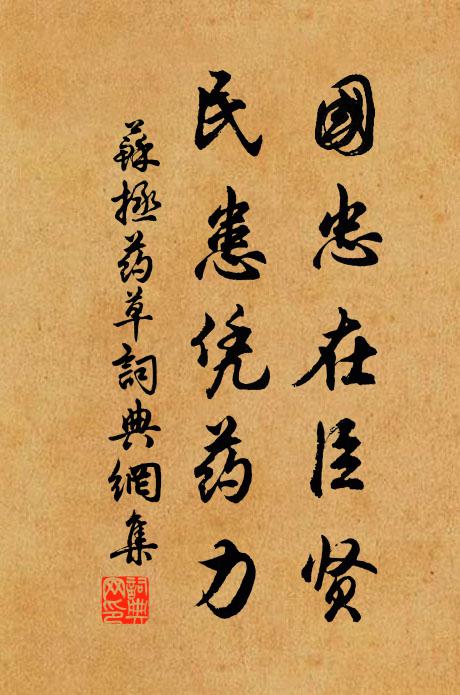 國忠在臣贤
民患凭药力
蘇拯药草詞典網集
詞典网印